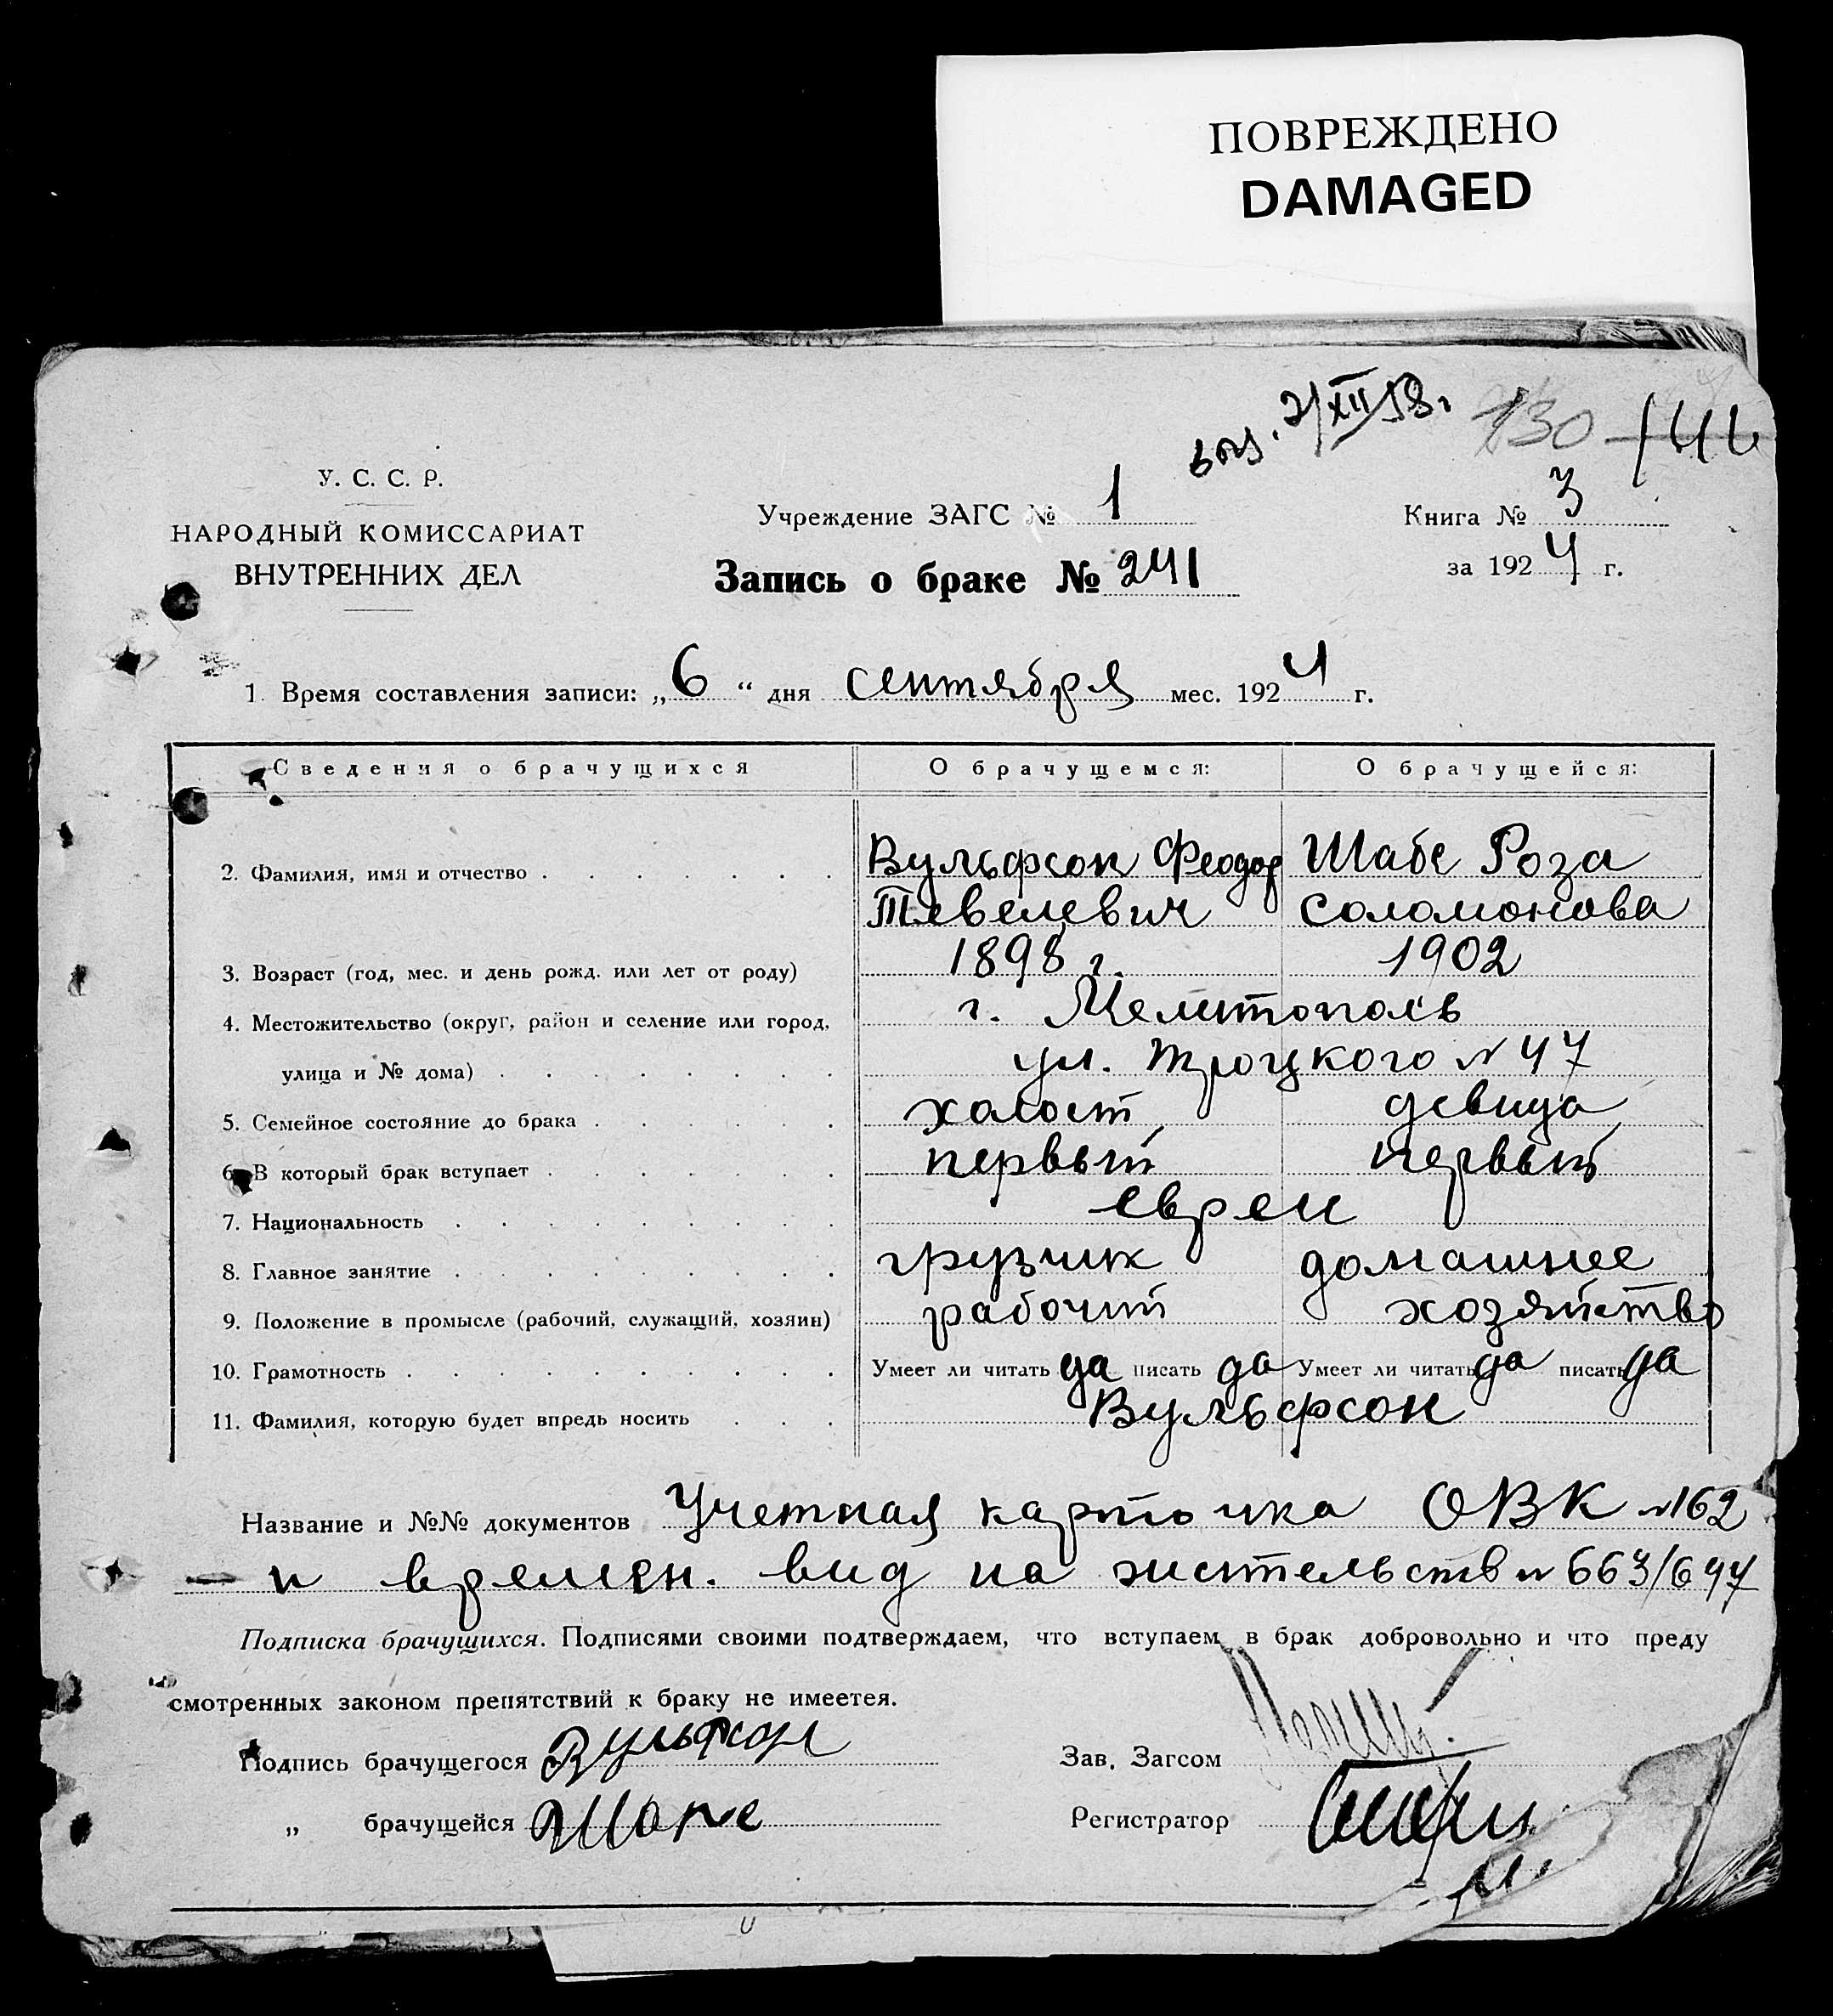 ПОВРЕЖДЕНО
DAMAGED
2/XII 58 г.
130
144
У. С. С. Р.
НАРОДНЫЙ КОМИССАРИАТ
ВНУТРЕННИХ ДЕЛ
Учреждение ЗАГС № 1
Книга № 3
Запись о браке № 241
за 1924 г.
1. Время составления записи: „6“ дня сентября мес. 1924 г.
Сведения о брачущихся О брачущемся: О брачущейся:
2. Фамилия, имя и отчество Вульфсон Феодор Шабе Роза
Тевелевич Соломонова
3. Возраст (год, мес. и день рожд. или лет от роду) 1898 г. 1902
4. Местожительство (округ, район и селение или город, г. Мелитополь
улица и № дома) ул. Троцкого № 47
5. Семейное состояние до брака холост девица
6. В который брак вступает первый первый
7. Национальность евреи
8. Главное занятие грузчик домашнее
9. Положение в промысле (рабочий, служащий, хозяин) рабочий хозяйство
10. Грамотность Умеет ли читать да писать да Умеет ли читать да писать да
11. Фамилия, которую будет впредь носить Вульфсон
Название и №№ документов Учетная карточка ОВК №162
— и времен. вид на жительств № 663/647
Подписка брачущихся. Подписями своими подтверждаем, что вступаем в брак добровольно и что преду
смотренных законом препятствий к браку не имеетея.
Подпись брачущегося Вульфсон Зав. Загсом
„ брачущейся Регистратор